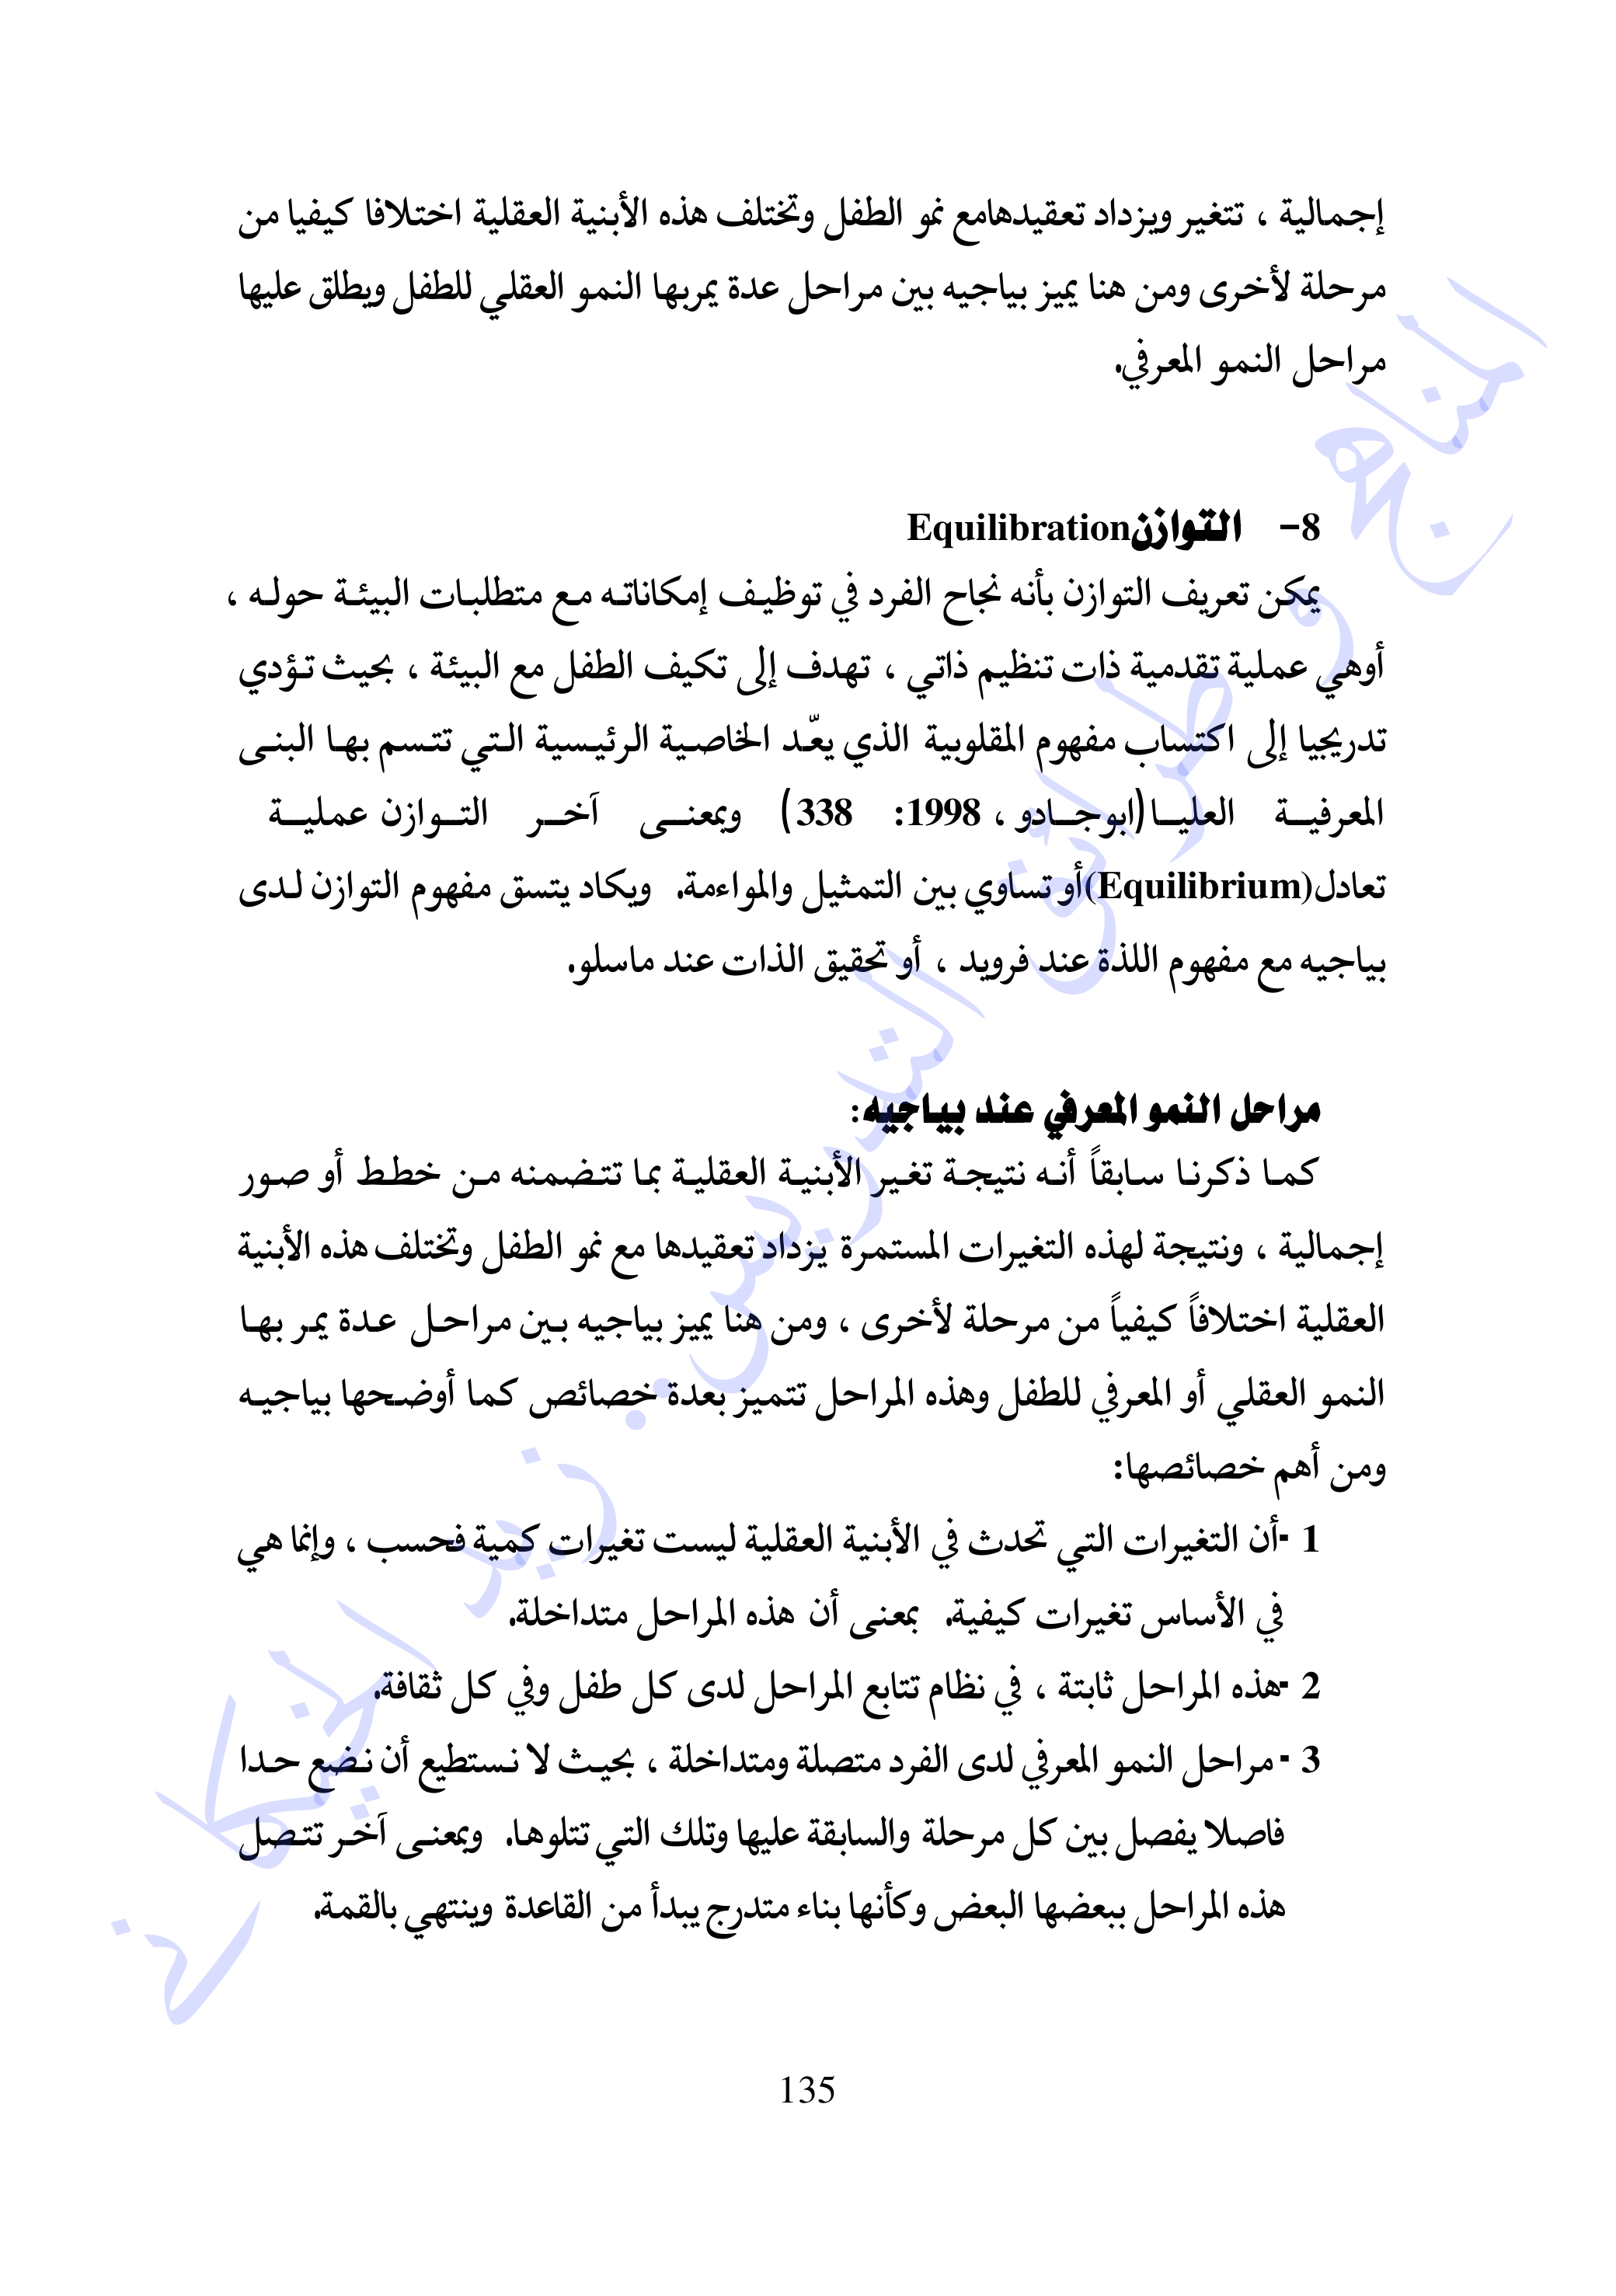 إجمالية ، تتغير ويزداد تعقيدهامع نمو الطفل وتختلف هذه الأبنية العقلية اختلافا كيفيا من
مرحلة لأخرى ومن هنا يميز بياجيه بين مراحل عدة يمربها النمو العقلي للطفل ويطلق عليها
مراحل النمو المعرفي.
8- التوازنEquilibration
يمكن تعريف التوازن بأنه نجاح الفرد في توظيف إمكاناته مع متطلبات البيئة حوله ،
أوهي عملية تقدمية ذات تنظيم ذاتي ، تهدف إلى تكيف الطفل مع البيئة ، بحيث تؤدي
تدريجيا إلى اكتساب مفهوم المقلوبية الذي يعّد الخاصية الرئيسية التي تتسم بها البنى
المعرفية العليا(ابوجادو ، 1998: 338) وبمعنى آخر التوازن عملية
تعادل(Equilibrium)أو تساوي بين التمثيل والمواءمة. ويكاد يتسق مفهوم التوازن لدى
بياجيه مع مفهوم اللذة عند فرويد ، أو تحقيق الذات عند ماسلو.
مراحل النمو المعرفي عند بياجيه:
كما ذكرنا سابقاً أنه نتيجة تغير الأبنية العقلية بما تتضمنه من خطط أو صور
إجمالية ، ونتيجة لهذه التغيرات المستمرة يزداد تعقيدها مع نمو الطفل وتختلف هذه الأبنية
العقلية اختلافاً كيفياً من مرحلة لأخرى ، ومن هنا يميز بياجيه بين مراحل عدة يمر بها
النمو العقلي أو المعرفي للطفل وهذه المراحل تتميز بعدة خصائص كما أوضحها بياجيه
ومن أهم خصائصها:
1 -أن التغيرات التي تحدث في الأبنية العقلية ليست تغيرات كمية فحسب ، وإنما هي
في الأساس تغيرات كيفية. بمعنى أن هذه المراحل متداخلة.
2 -هذه المراحل ثابتة ، في نظام تتابع المراحل لدى كل طفل وفي كل ثقافة.
3 - مراحل النمو المعرفي لدى الفرد متصلة ومتداخلة ، بحيث لا نستطيع أن نضع حدا
فاصلا يفصل بين كل مرحلة والسابقة عليها وتلك التي تتلوها. وبمعنى آخر تتصل
هذه المراحل ببعضها البعض وكأنها بناء متدرج يبدأ من القاعدة وينتهي بالقمة.
135